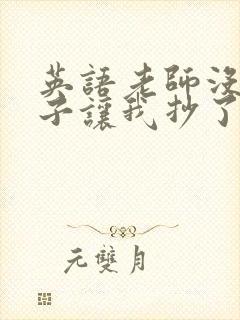 英語老師沒
子讓我抄了
元雙月